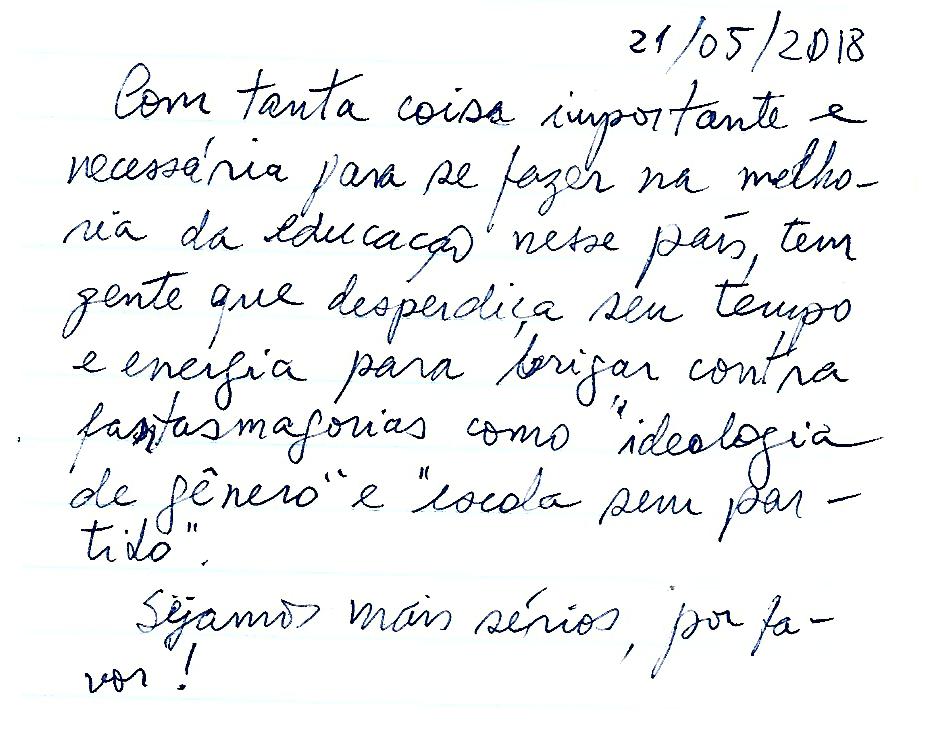 21/05/2018
Com tanta coisa importante e
necessária para se fazer na melho-
ria da educação nesse país, tem
gente que desperdiça seu tempo
e energia para brigar contra
fantasmagorias como "ideologia
de gênero" e "escola sem par-
tido".
Sejamos mais sérios, por fa-
vor!